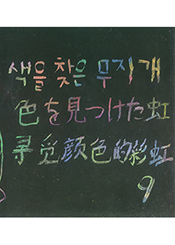 색을 찾은 무지개
色を見つけた虹
寻觅颜色的彩虹